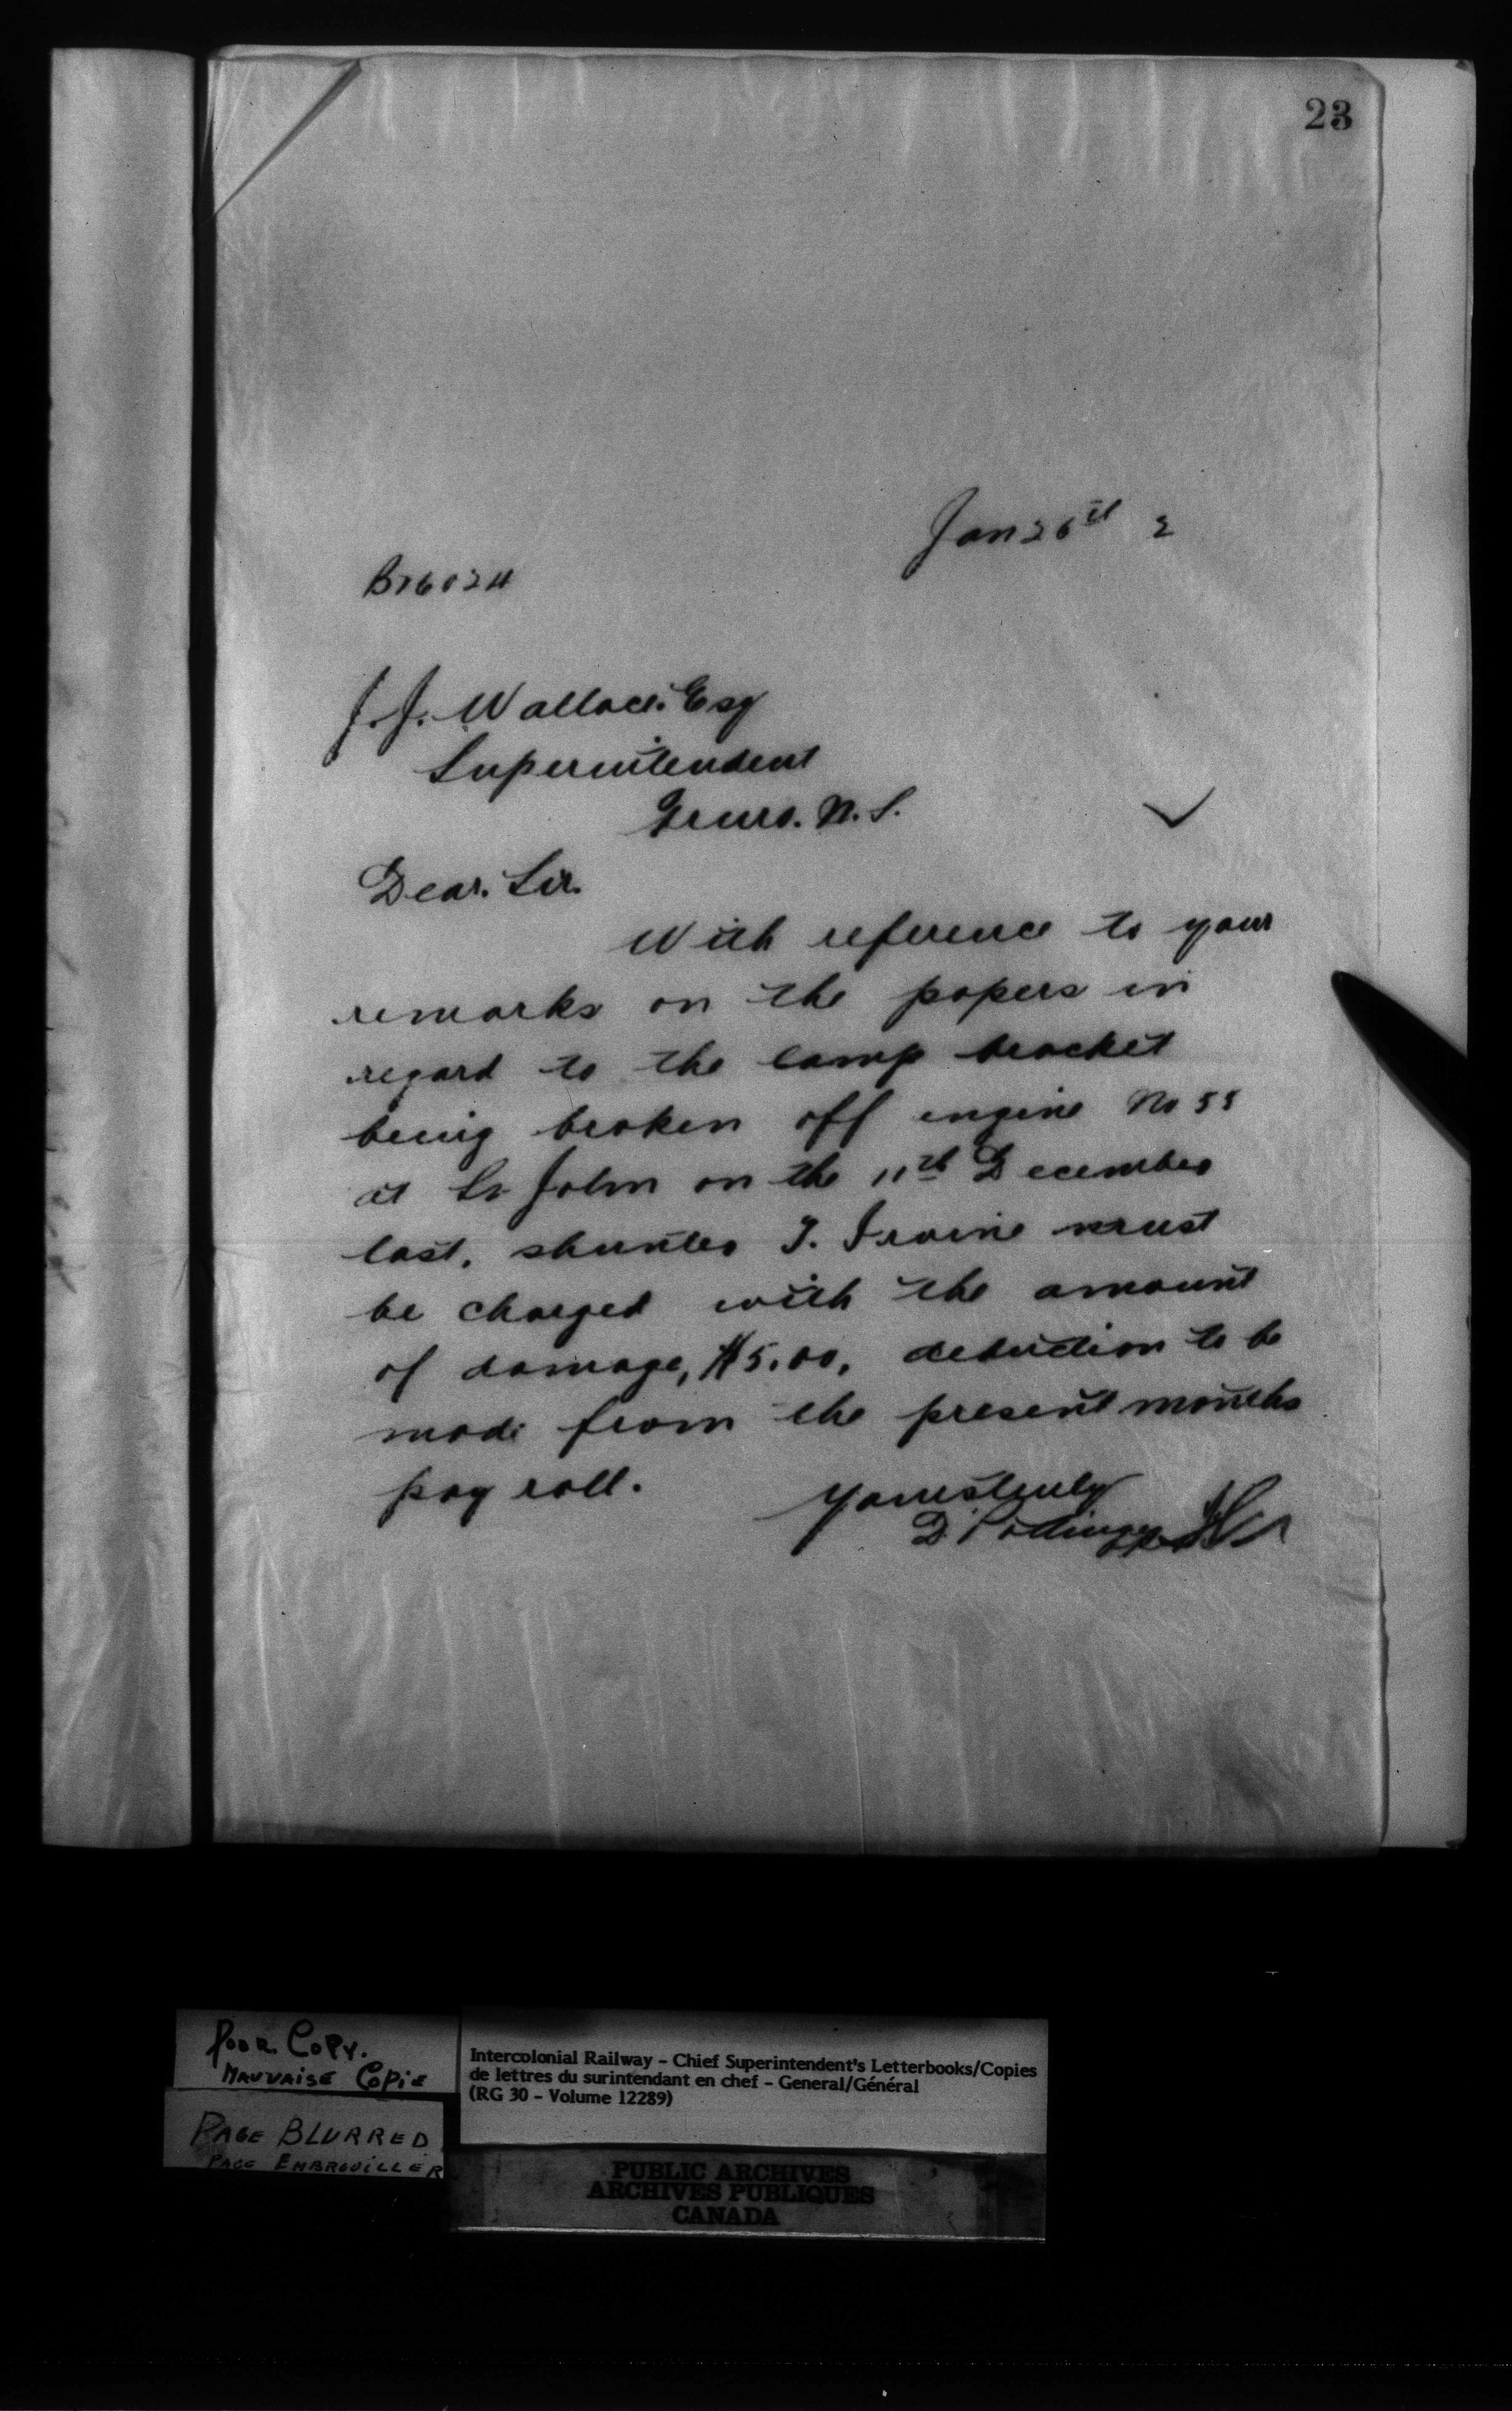 23
Jan 26th 2
B76024
J. J. Wallace. Esq
Superintendent
Truro. N. S.
Dear. Sir.
With reference to your
remarks on the papers in
regard to the lamp bracket
being broken off engine No 55
at St John on the 11th December
last, shunter T. Irvine must
be charged with the amount
of damage, $5.00, deduction to be
made from the present months
pay roll.
Yours truly
D. Pottinger
Poor Copy.
Mauvaise Copie
Page Blurred
Page Embrouiller
Intercolonial Railway – Chief Superintendent's Letterbooks/Copies
de lettres du surintendant en chef – General/Général
(RG 30 – Volume 12289)
PUBLIC ARCHIVES
ARCHIVES PUBLIQUES
CANADA